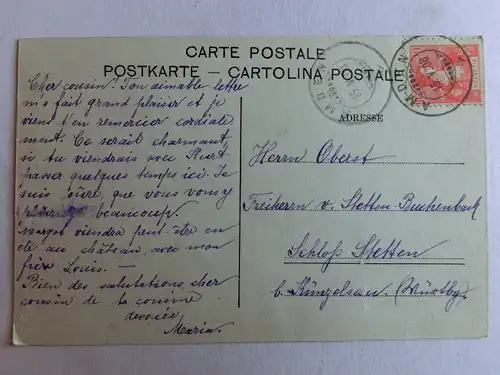 CARTE POSTALE
POSTKARTE – CARTOLINA POSTALE
ADRESSE
Cher cousin! Ton aimable lettre
m'a fait grand plaisir et je
viens t'en remercier cordiale
ment. Ce serait charmant,
si tu viendrais avec Kurt
passer quelques temps ici. Je
suis sûre, que vous vous y
beaucoup.
Margot viendra peut-être en
été au château, avec mon
frère Louis. —
Bien des salutations, cher
cousin de la cousine
devouée
Maria.
Herrn Oberst
Freiherrn v. Stetten-Buchenbach
Schloß Stetten
b. Künzelsau. (Württbg.)